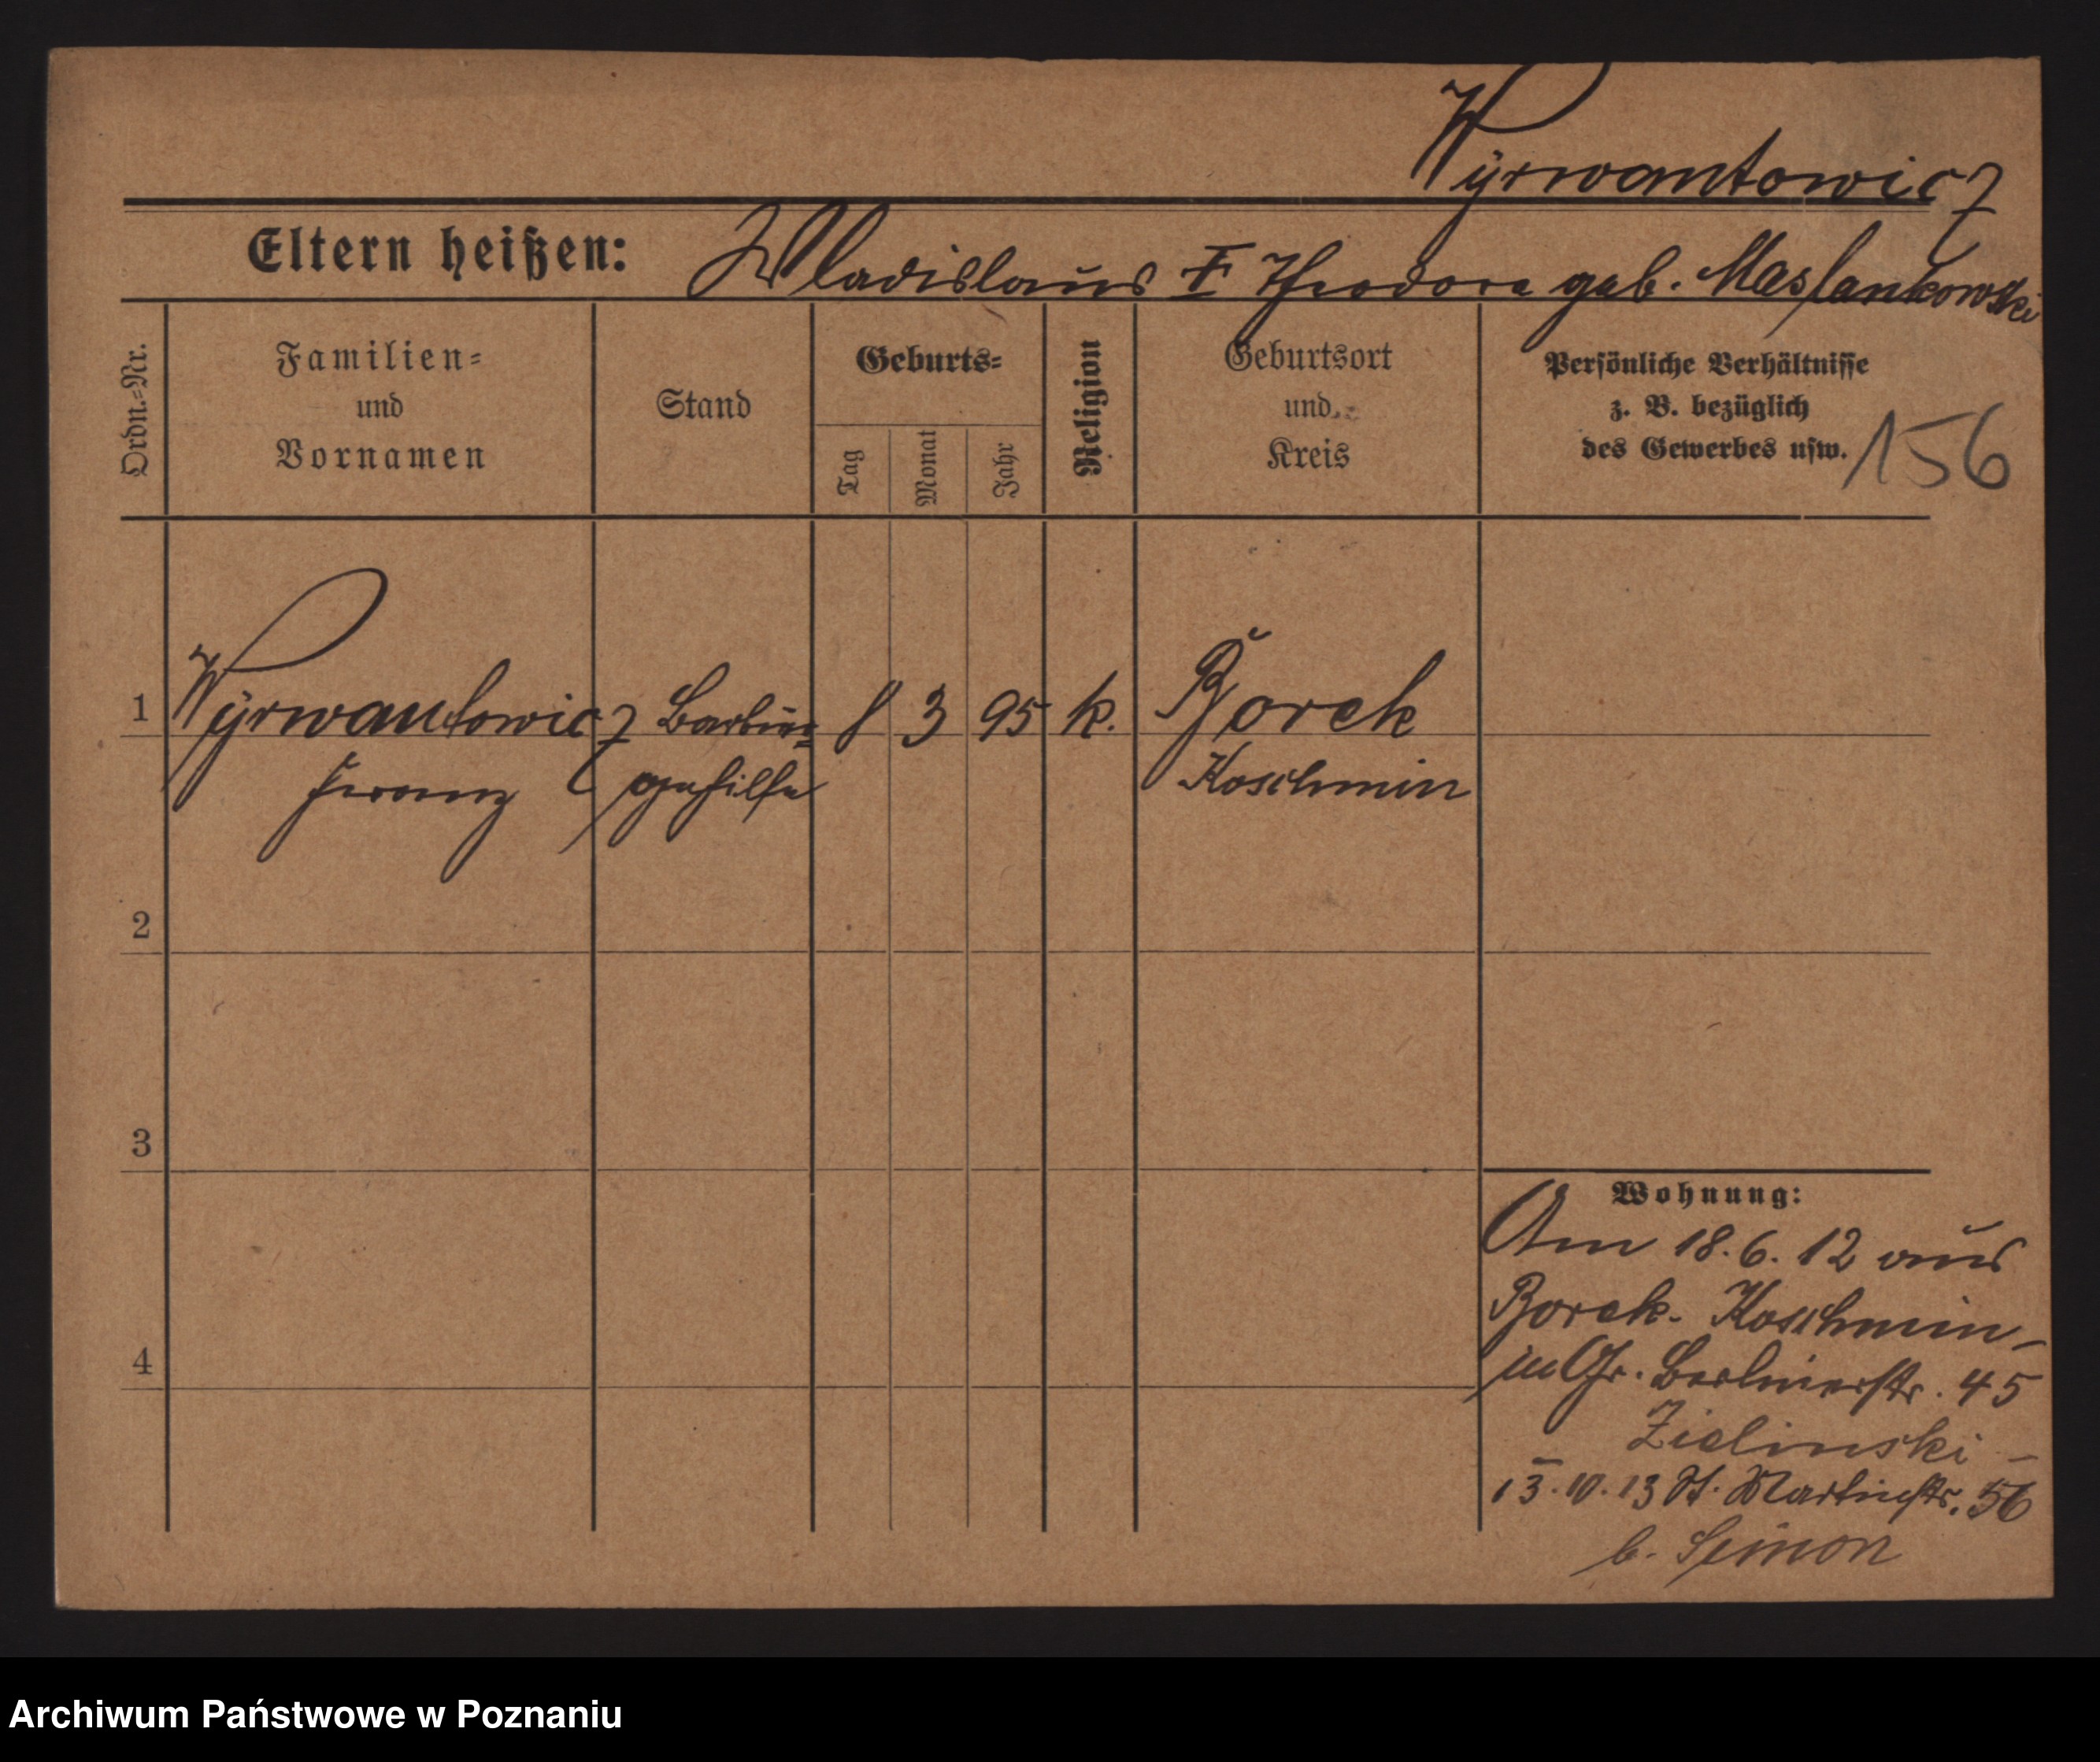 Wyrwantowicz
Eltern heißen: Wladislaus u. Theodora geb. Maslankowski
Ordn.-Nr.
Familien-
und
Vornamen
Stand
Geburts-
Tag
Monat
Jahr
Religion
Geburtsort
und
Kreis
Persönliche Verhältnisse
z. B. bezüglich
des Gewerbes usw.
156
1 Wyrwantowicz Barbier= 8 3 95 k. Borek
Franz gehilfe Koschmin
2
3
4
Wohnung:
Am 18.6.12 aus
Borek-Koschmin-
in Gr. Berlinerstr. 45
Zielinski -
13.10.13 St. Martinstr. 56
b. Simon
Archiwum Państwowe w Poznaniu